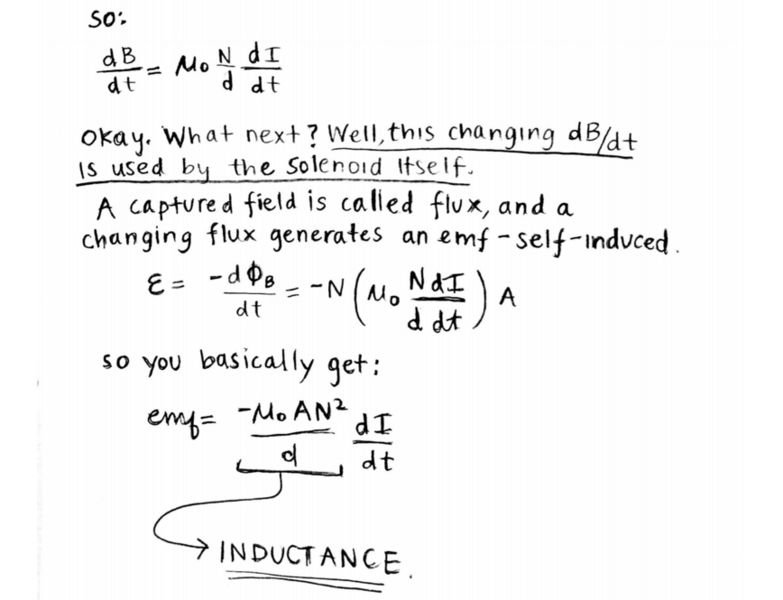 SO:
dB/dt = μ₀ N/d dI/dt
Okay. What next? Well, this changing dB/dt
is used by the solenoid itself.
A captured field is called flux, and a
changing flux generates an emf - self-induced.
ε = -dΦ_B/dt = -N (μ₀ N dI/d dt) A
so you basically get:
emf = -μ₀AN²/d dI/dt
→ INDUCTANCE.